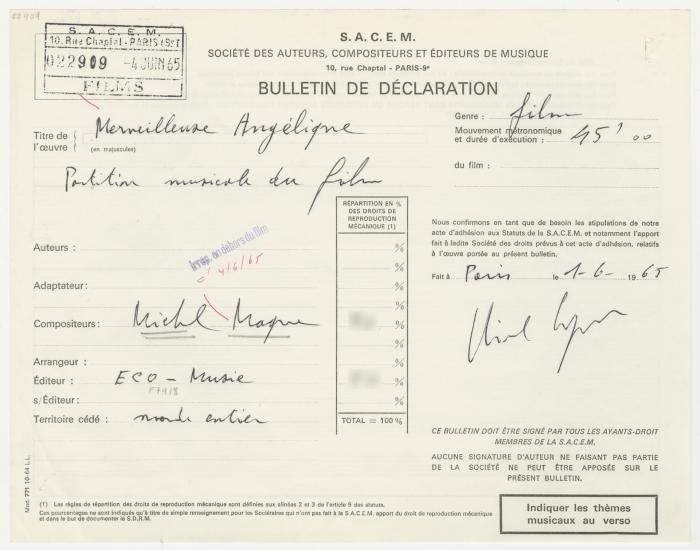 22909
S. A. C. E. M.
10, Rue Chaptal - PARIS (9e)
022909 -4 JUIN 65
FILMS
S. A. C. E. M.
SOCIÉTÉ DES AUTEURS, COMPOSITEURS ET ÉDITEURS DE MUSIQUE
10, rue Chaptal - PARIS-9e
BULLETIN DE DÉCLARATION
Titre de l'œuvre { Merveilleuse Angélique
(en majuscules)
Partition musicale du film
Genre : film
Mouvement métronomique et durée d'exécution : 45' 00
du film :
RÉPARTITION EN %
DES DROITS DE
REPRODUCTION
MÉCANIQUE (1)
Irrep. en dehors du film
4/6/65
Auteurs : %
%
Adaptateur : %
Compositeurs : Michel Magne %
%
Arrangeur : %
Éditeur : ECO - Music %
F7418
s/Éditeur : %
Territoire cédé : monde entier
TOTAL = 100 %
Nous confirmons en tant que de besoin les stipulations de notre
acte d'adhésion aux Statuts de la S.A.C.E.M. et notamment l'apport
fait à ladite Société des droits prévus à cet acte d'adhésion, relatifs
à l'œuvre portée au présent bulletin.
Fait à Paris le 1-6- 1965
CE BULLETIN DOIT ÊTRE SIGNÉ PAR TOUS LES AYANTS-DROIT
MEMBRES DE LA S.A.C.E.M.
AUCUNE SIGNATURE D'AUTEUR NE FAISANT PAS PARTIE
DE LA SOCIÉTÉ NE PEUT ÊTRE APPOSÉE SUR LE
PRÉSENT BULLETIN.
Mod. 771 10-64 L.L.
(1) Les règles de répartition des droits de reproduction mécanique sont définies aux alinéas 2 et 3 de l'article 9 des statuts.
Ces pourcentages ne sont indiqués qu'à titre de simple renseignement pour les Sociétaires qui n'ont pas fait à la S.A.C.E.M. apport du droit de reproduction mécanique
et dans le but de documenter la S.D.R.M.
Indiquer les thèmes
musicaux au verso